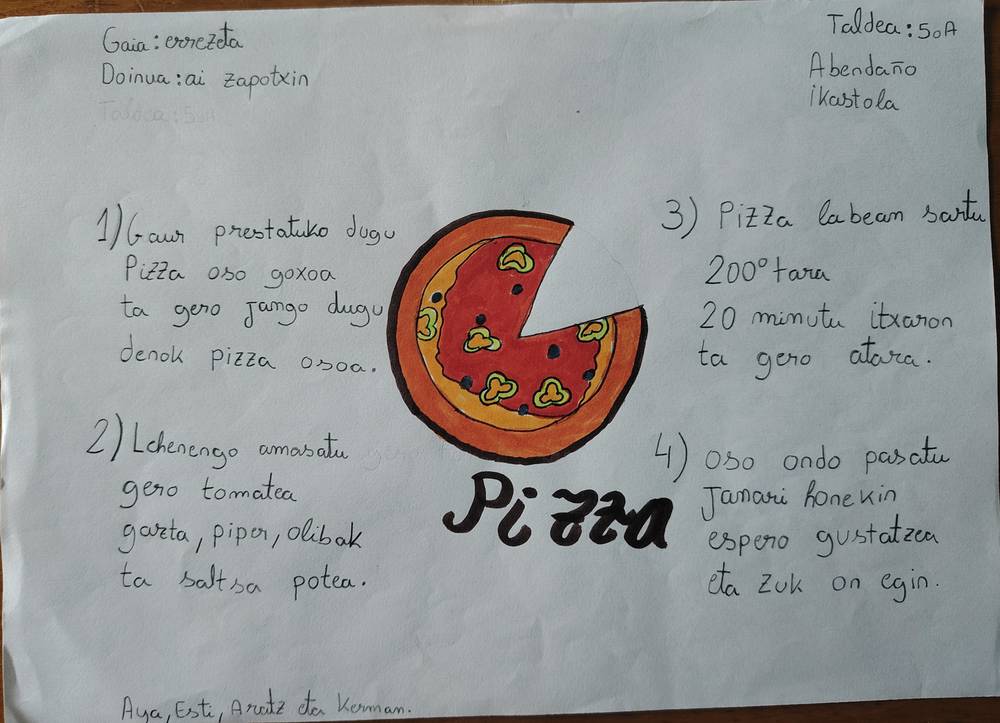 Gaia: errezeta
Doinua: ai zapotxin
Taldea: 5oA
Taldea: 5oA
Abendaño
ikastola
1) Gaur prestatuko dugu
Pizza oso goxoa
ta gero jango dugu
denok pizza osoa.
2) Lehenengo amasatu
gero tomatea
gazta, piper, olibak
ta saltsa potea.
3) Pizza labean sartu
200º tara
20 minutu itxaron
ta gero atara.
4) oso ondo pasatu
Janari honekin
espero gustatzea
eta zuk on egin.
Pizza
Aya, Esti, Aratz eta Kerman.